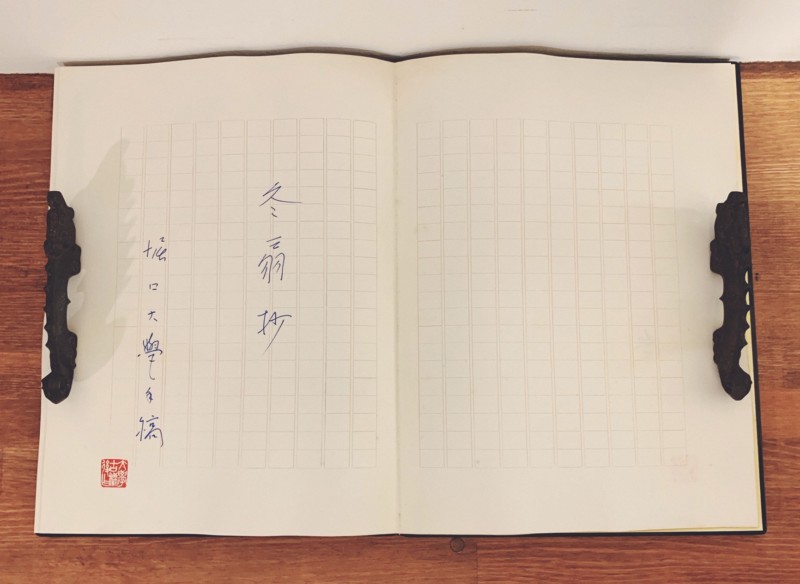 冬扇抄
堀口大學手稿